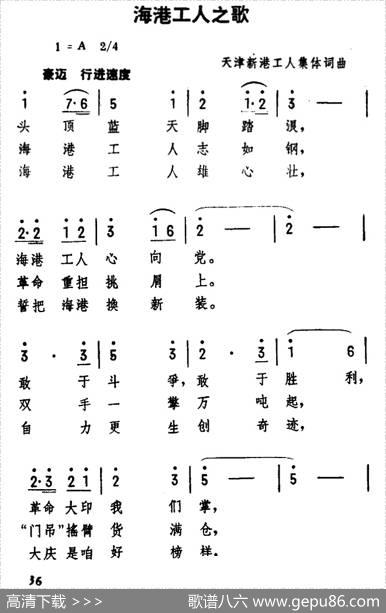 海港工人之歌
1 = A 2/4
豪迈 行进速度
天津新港工人集体词曲
i 7·6 | 5 i | 2 i·2 | 3 — |
头 顶 蓝 天 脚 踏 浪,
海 港 工 人 志 如 钢,
海 港 工 人 雄 心 壮,
2·2 i 2 | 3 i 6 | 2 — | 2 — |
海港 工人 心 向 党。
革命 重担 挑 肩 上。
誓把 海港 换 新 装。
3 · 3 | 5 3 | 2 · 3 | i 6 |
敢 于 斗 争,敢 于 胜 利,
双 手 一 擎 万 吨 起,
自 力 更 生 创 奇 迹,
2·3 2 1 | 2 3 | 5 — | 5 — |
革命 大印 我 们 掌,
“门吊”摇臂 货 满 仓,
大庆 是咱 好 榜 样。
36
高清下载 > 歌谱八六 www.gepu86.com